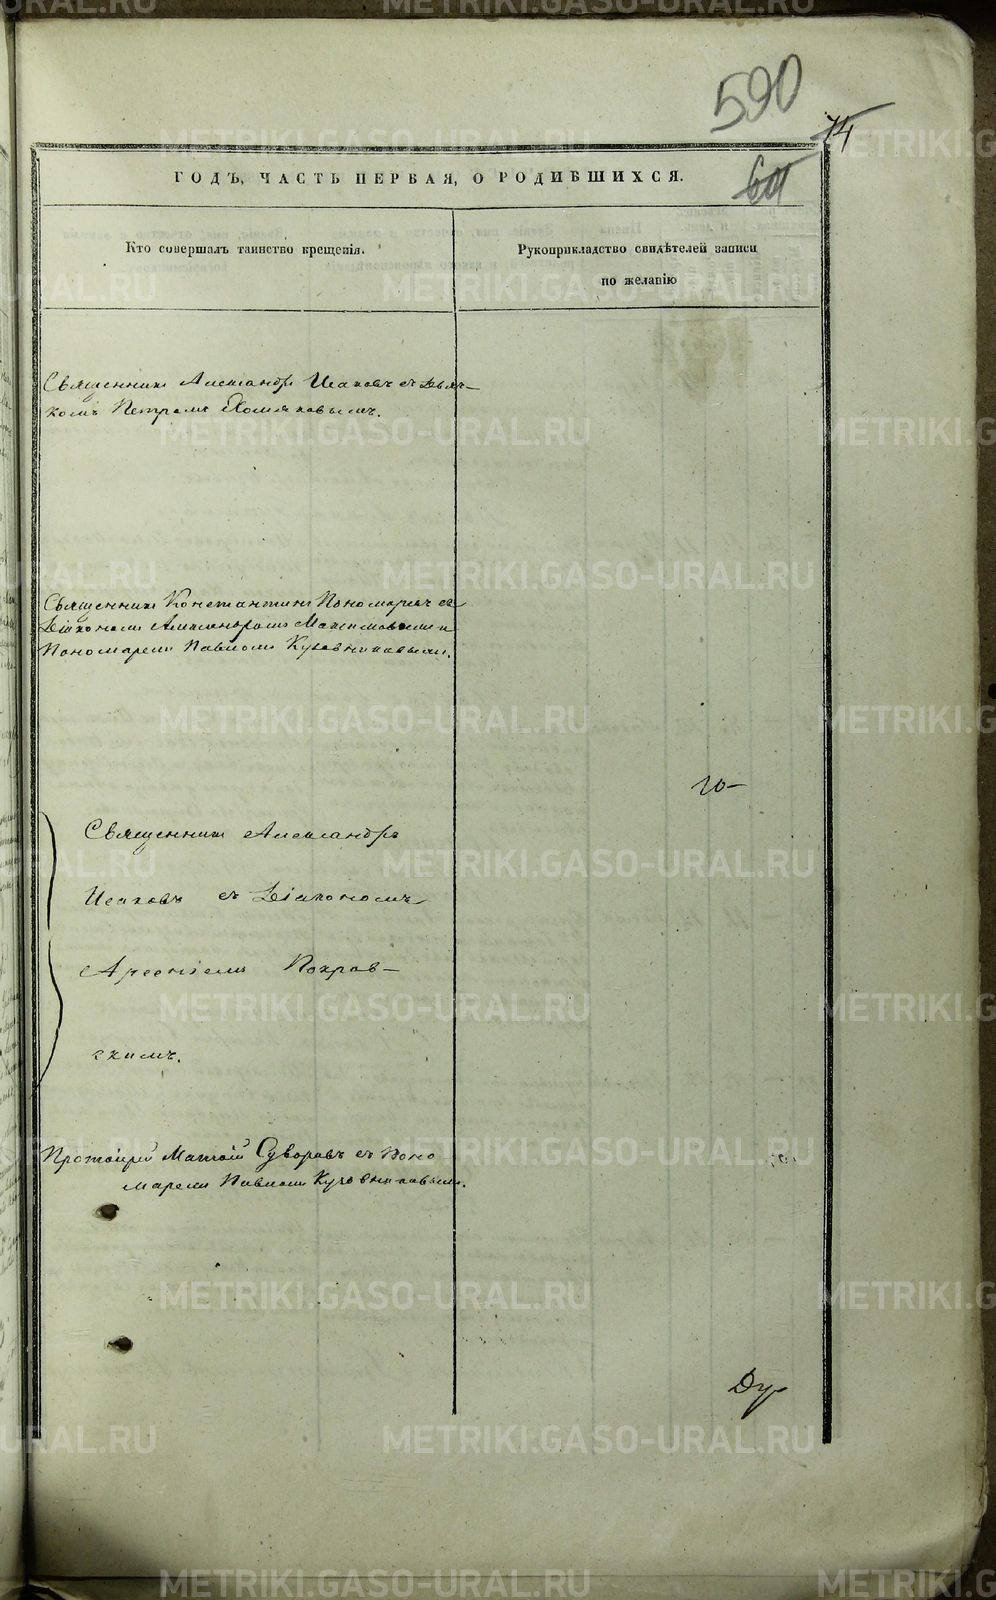 590
74
64
ГОДЪ, ЧАСТЬ ПЕРВАЯ, О РОДИВШИХСЯ.
Кто совершалъ таинство крещенія.
Рукоприкладство свидѣтелей записи
по желанію
Священникъ Александръ Исаковъ съ Дьяч-
комъ Петромъ Хомяковымъ.
Священникъ Константинъ Пономаревъ съ
Діакономъ Александромъ Максимовымъ и
Пономаремъ Павломъ Кузовниковымъ.
Священникъ Александръ
Исаковъ съ Діакономъ
Арсеніемъ Покров-
скимъ.
Протоіерей Матвій Суворовъ съ Поно
маремъ Павломъ Кузовниковымъ.
METRIKI.GASO-URAL.RU